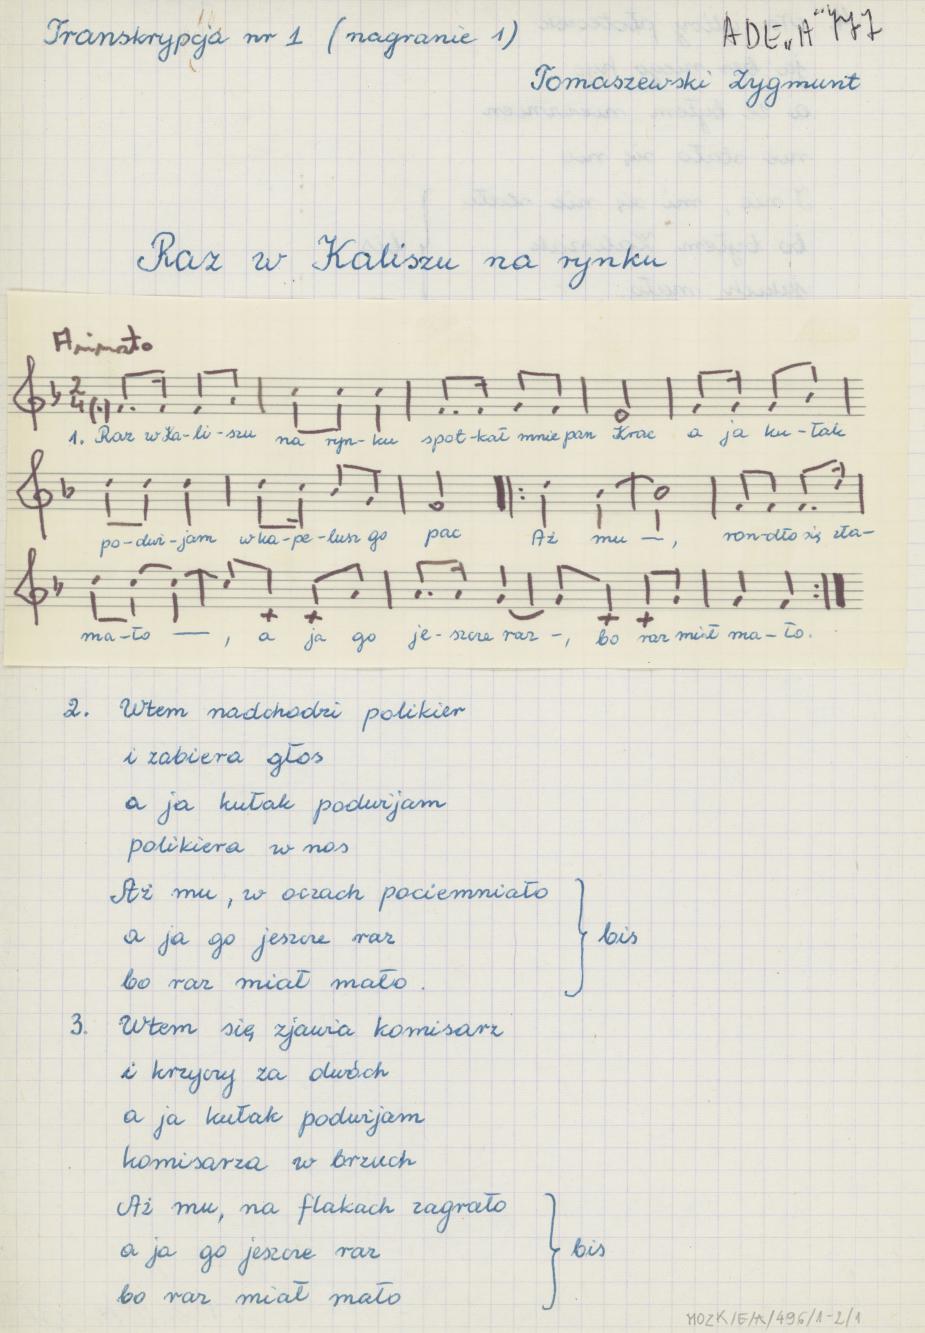 Transkrypcja nr 1 (nagranie 1)
ADE „A" 777
Tomaszewski Zygmunt
Raz w Kaliszu na rynku
Animato
2
4
1. Raz w Ka-li-szu na ryn-ku spot-kał mnie pan Krac a ja ku-łak
po-dwi-jam w ka-pe-lusz go pac Aż mu —, ron-dło się zła-
ma-ło —, a ja go je-szcze raz -, bo raz miał ma-ło.
2. Wtem nadchodzi polikier
i zabiera głos
a ja kułak podwijam
polikiera w nos
Aż mu, w oczach pociemniało
a ja go jeszcze raz
bis
bo raz miał mało.
3. Wtem się zjawia komisarz
i krzyczy za dwóch
a ja kułak podwijam
komisarza w brzuch
Aż mu, na flakach zagrało
a ja go jeszcze raz
bis
bo raz miał mało
MOZK/E/A/496/1-2/1